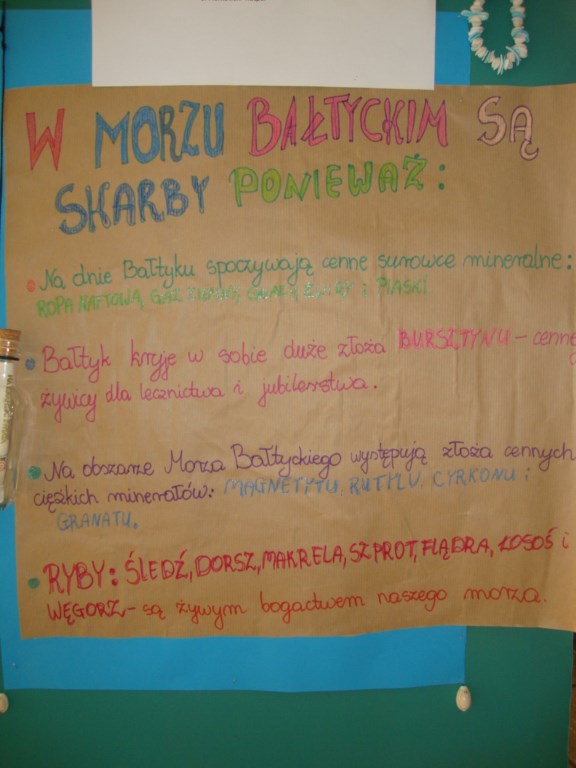 W MORZU BAŁTYCKIM SĄ
SKARBY PONIEWAŻ:
Na dnie Bałtyku spoczywają cenne surowce mineralne:
ROPA NAFTOWA, GAZ ZIEMNY, ŻWIRY i PIASKI
Bałtyk kryje w sobie duże złoża BURSZTYNU - cennej
żywicy dla lecznictwa i jubilerstwa.
Na obszarze Morza Bałtyckiego występują złoża cennych
ciężkich minerałów: MAGNETYTU, RUTYLU, CYRKONU i
GRANATU.
RYBY: ŚLEDŹ, DORSZ, MAKRELA, SZPROT, FLĄDRA, ŁOSOŚ i
WĘGORZ - są żywym bogactwem naszego morza.